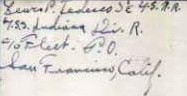 Lewis P. Tedesco S 2/c U.S.N.R.
U.S.S. Indiana Div. R.
c/o Fleet. P.O.
San Francisco, Calif.